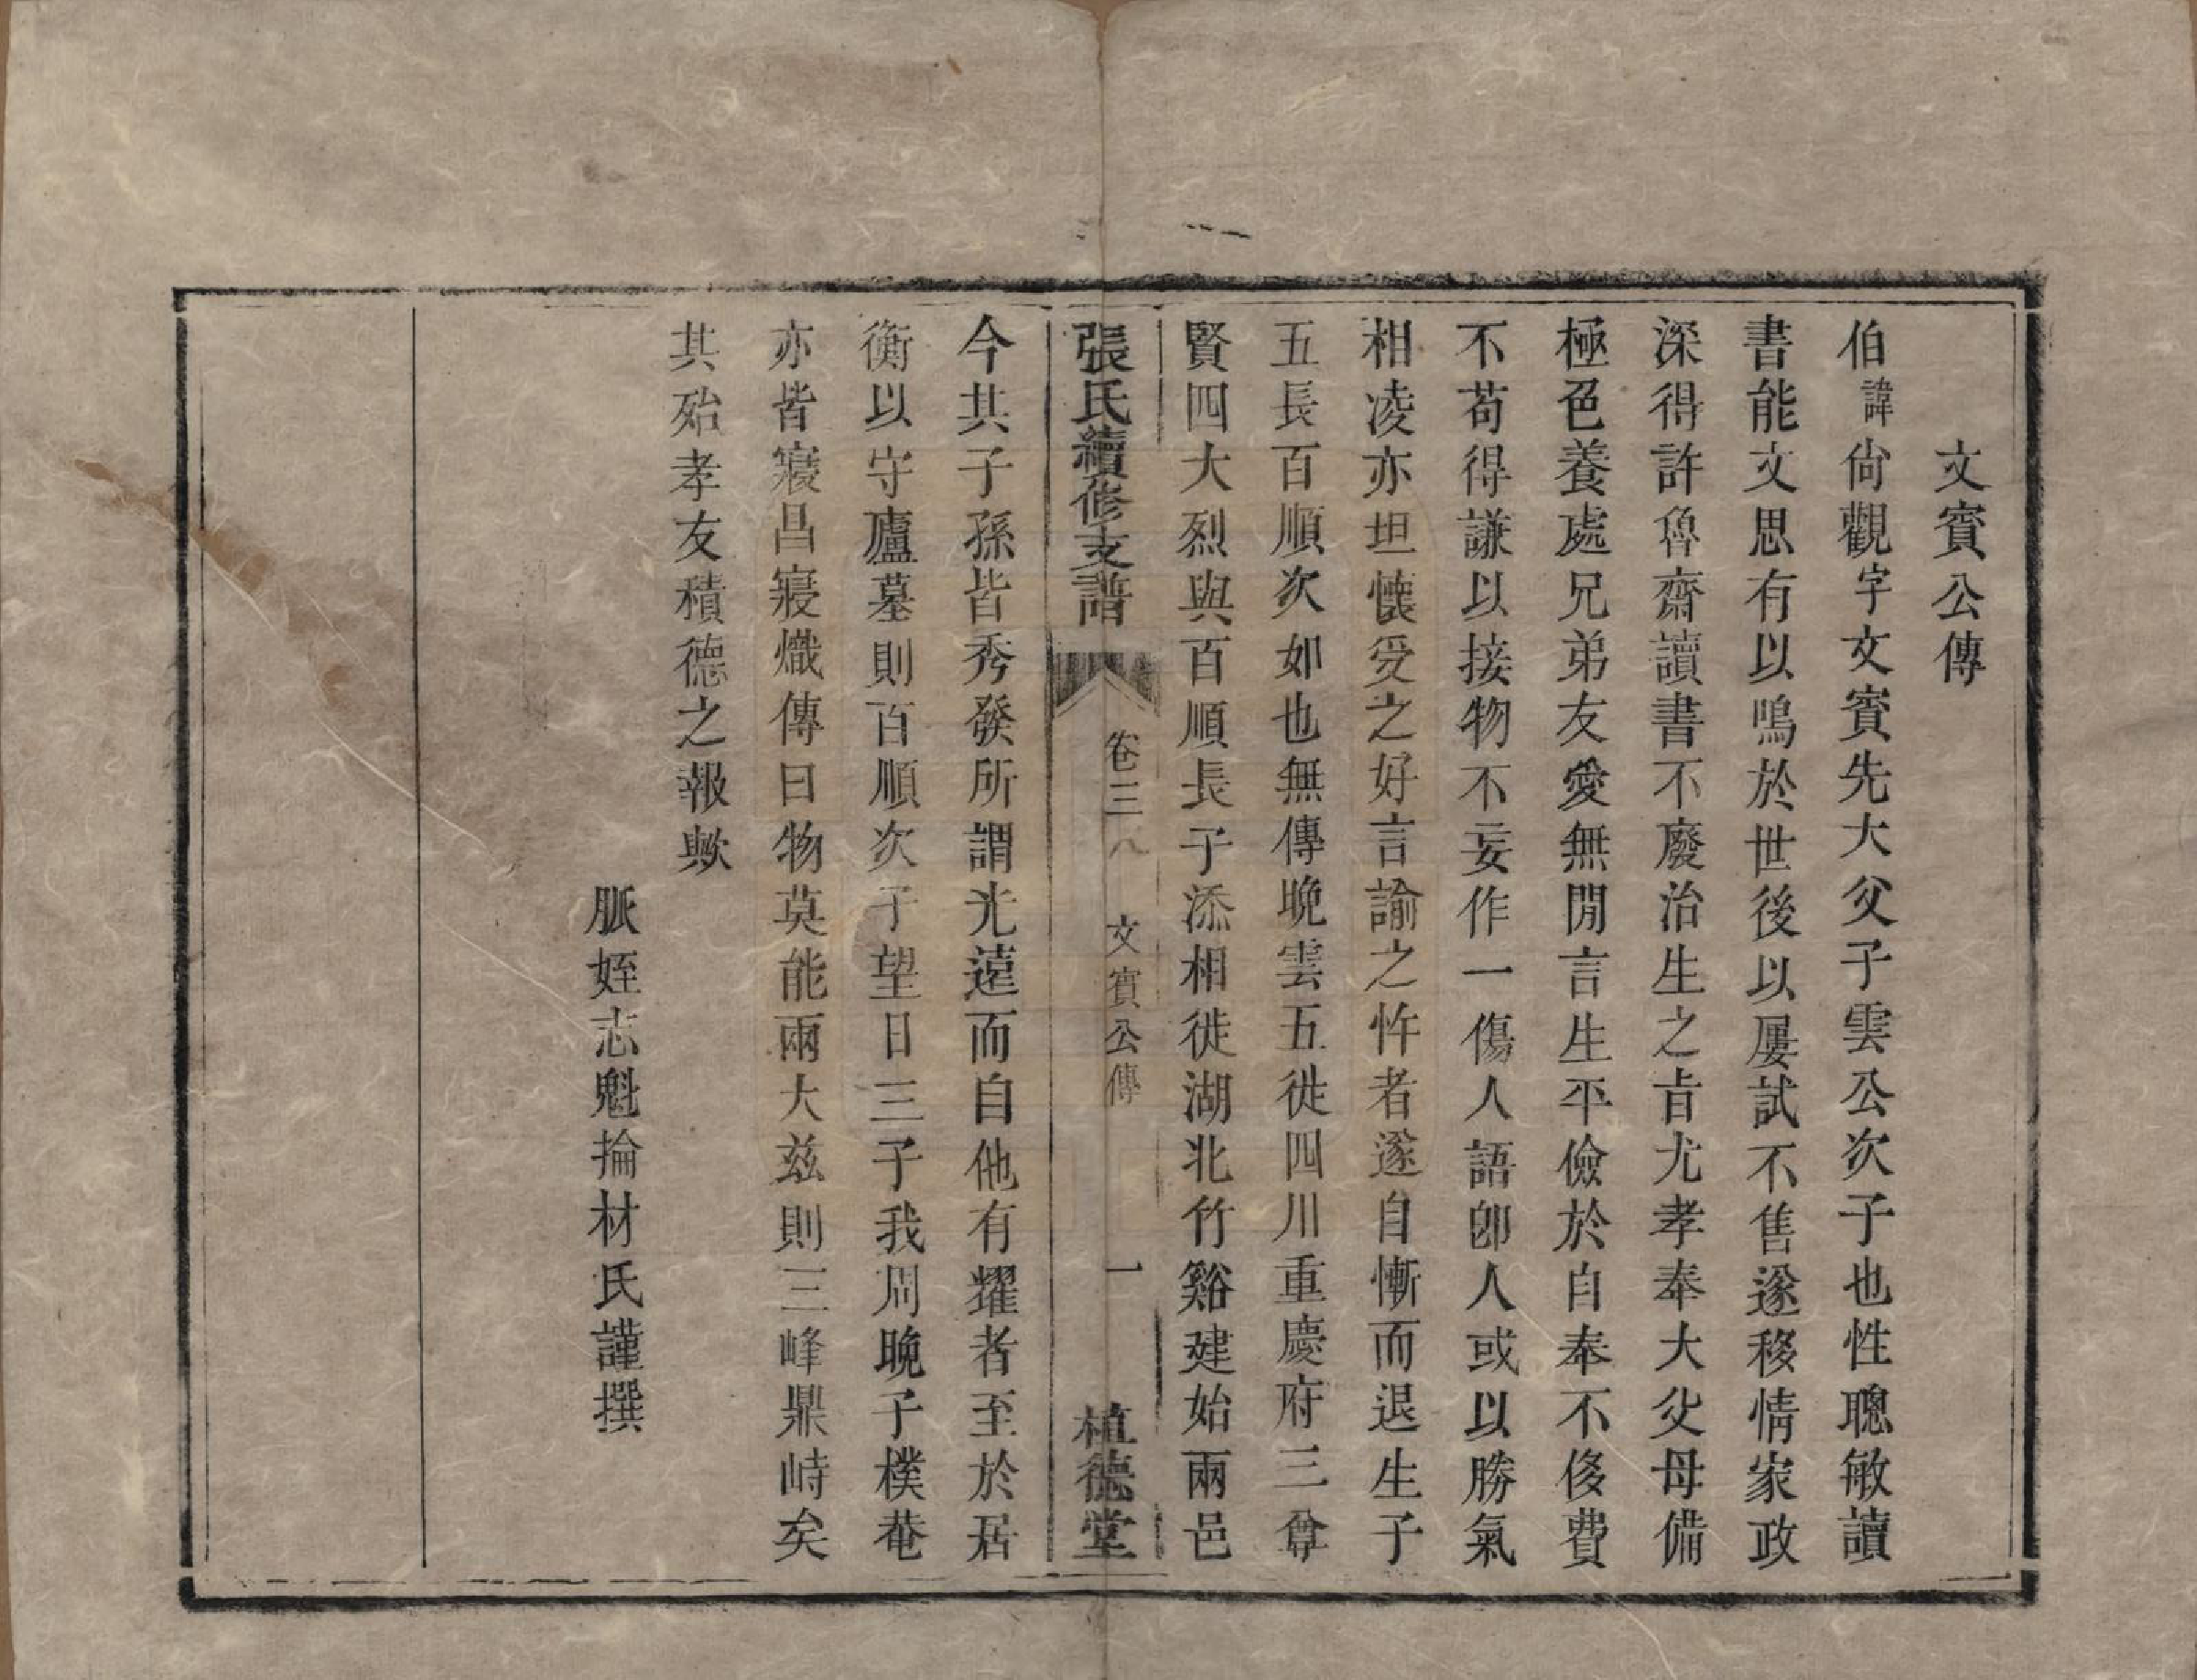 文賓公傳
伯諱尙觀字文賓先大父子雲公次子也性聰敏讀
書能文思有以鳴於世後以屢試不售遂移情家政
深得許魯齋讀書不廢治生之旨尤孝奉大父母備
極色養處兄弟友愛無閒言生平儉於自奉不侈費
不苟得謙以接物不妄作一傷人語卽人或以勝氣
相凌亦坦懷受之好言諭之忤者遂自慚而退生子
五長百順次如也無傳晚雲五徙四川重慶府三尊
賢四大烈與百順長子添相徙湖北竹谿建始兩邑
張氏續修支譜
卷三八
文賓公傳
一
植德堂
今其子孫皆秀發所謂光遠而自他有耀者至於居
衡以守廬墓則百順次子望日三子我周晚子樸菴
亦皆寖昌寖熾傳曰物莫能兩大茲則三峰鼎峙矣
其殆孝友積德之報歟
脈姪志魁掄材氏謹撰